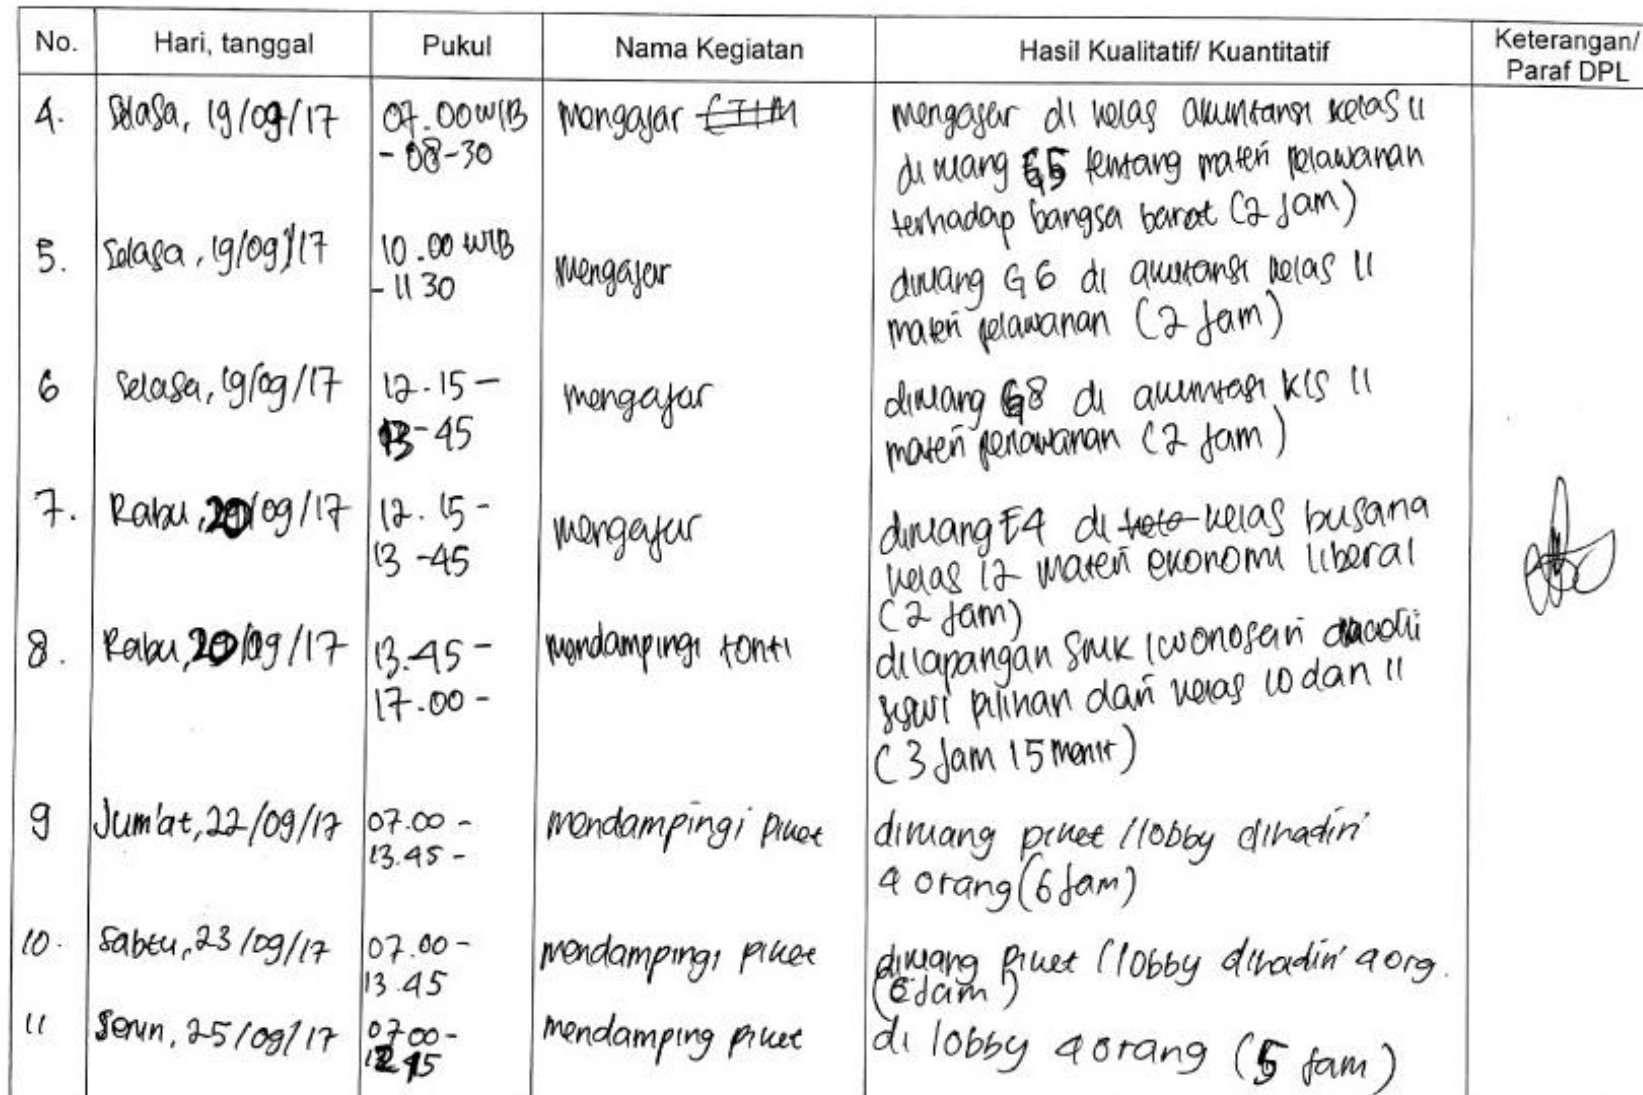 No. Hari, tanggal Pukul Nama Kegiatan Hasil Kualitatif/ Kuantitatif Keterangan/ Paraf DPL
4. Selasa, 19/09/17 07.00 WIB - 08-30 mengajar mengajar di kelas akuntansi kelas 11
di ruang G5 tentang materi pelawanan
terhadap bangsa barat (2 jam)
5. Selasa, 19/09/17 10.00 WIB - 11 30 mengajar diruang G6 di akutansi kelas 11
materi pelawanan (2 jam)
6 Selasa, 19/09/17 12.15 - 13-45 mengajar diruang G8 di akuntasi kls 11
materi penawanan (2 jam)
7. Rabu, 20/09/17 12.15 - 13 -45 mengajar diruang E4 di kelas busana
kelas 12 materi ekonomi liberal
(2 jam)
8. Rabu, 20/09/17 13.45 - 17.00 - mendampingi tonti dilapangan SMK 1 wonosari
siswi pilihan dari kelas 10 dan 11
(3 jam 15 menit)
9 Jum'at, 22/09/17 07.00 - 13.45 - mendampingi piket diruang piket /lobby dihadiri
4 orang (6 jam)
10. Sabtu, 23/09/17 07.00 - 13.45 mendampingi piket diruang piket /lobby dihadiri 4 org.
(6 jam)
11 Senin, 25/09/17 07 00 - 12 45 mendamping piket di lobby 4 orang (5 jam)